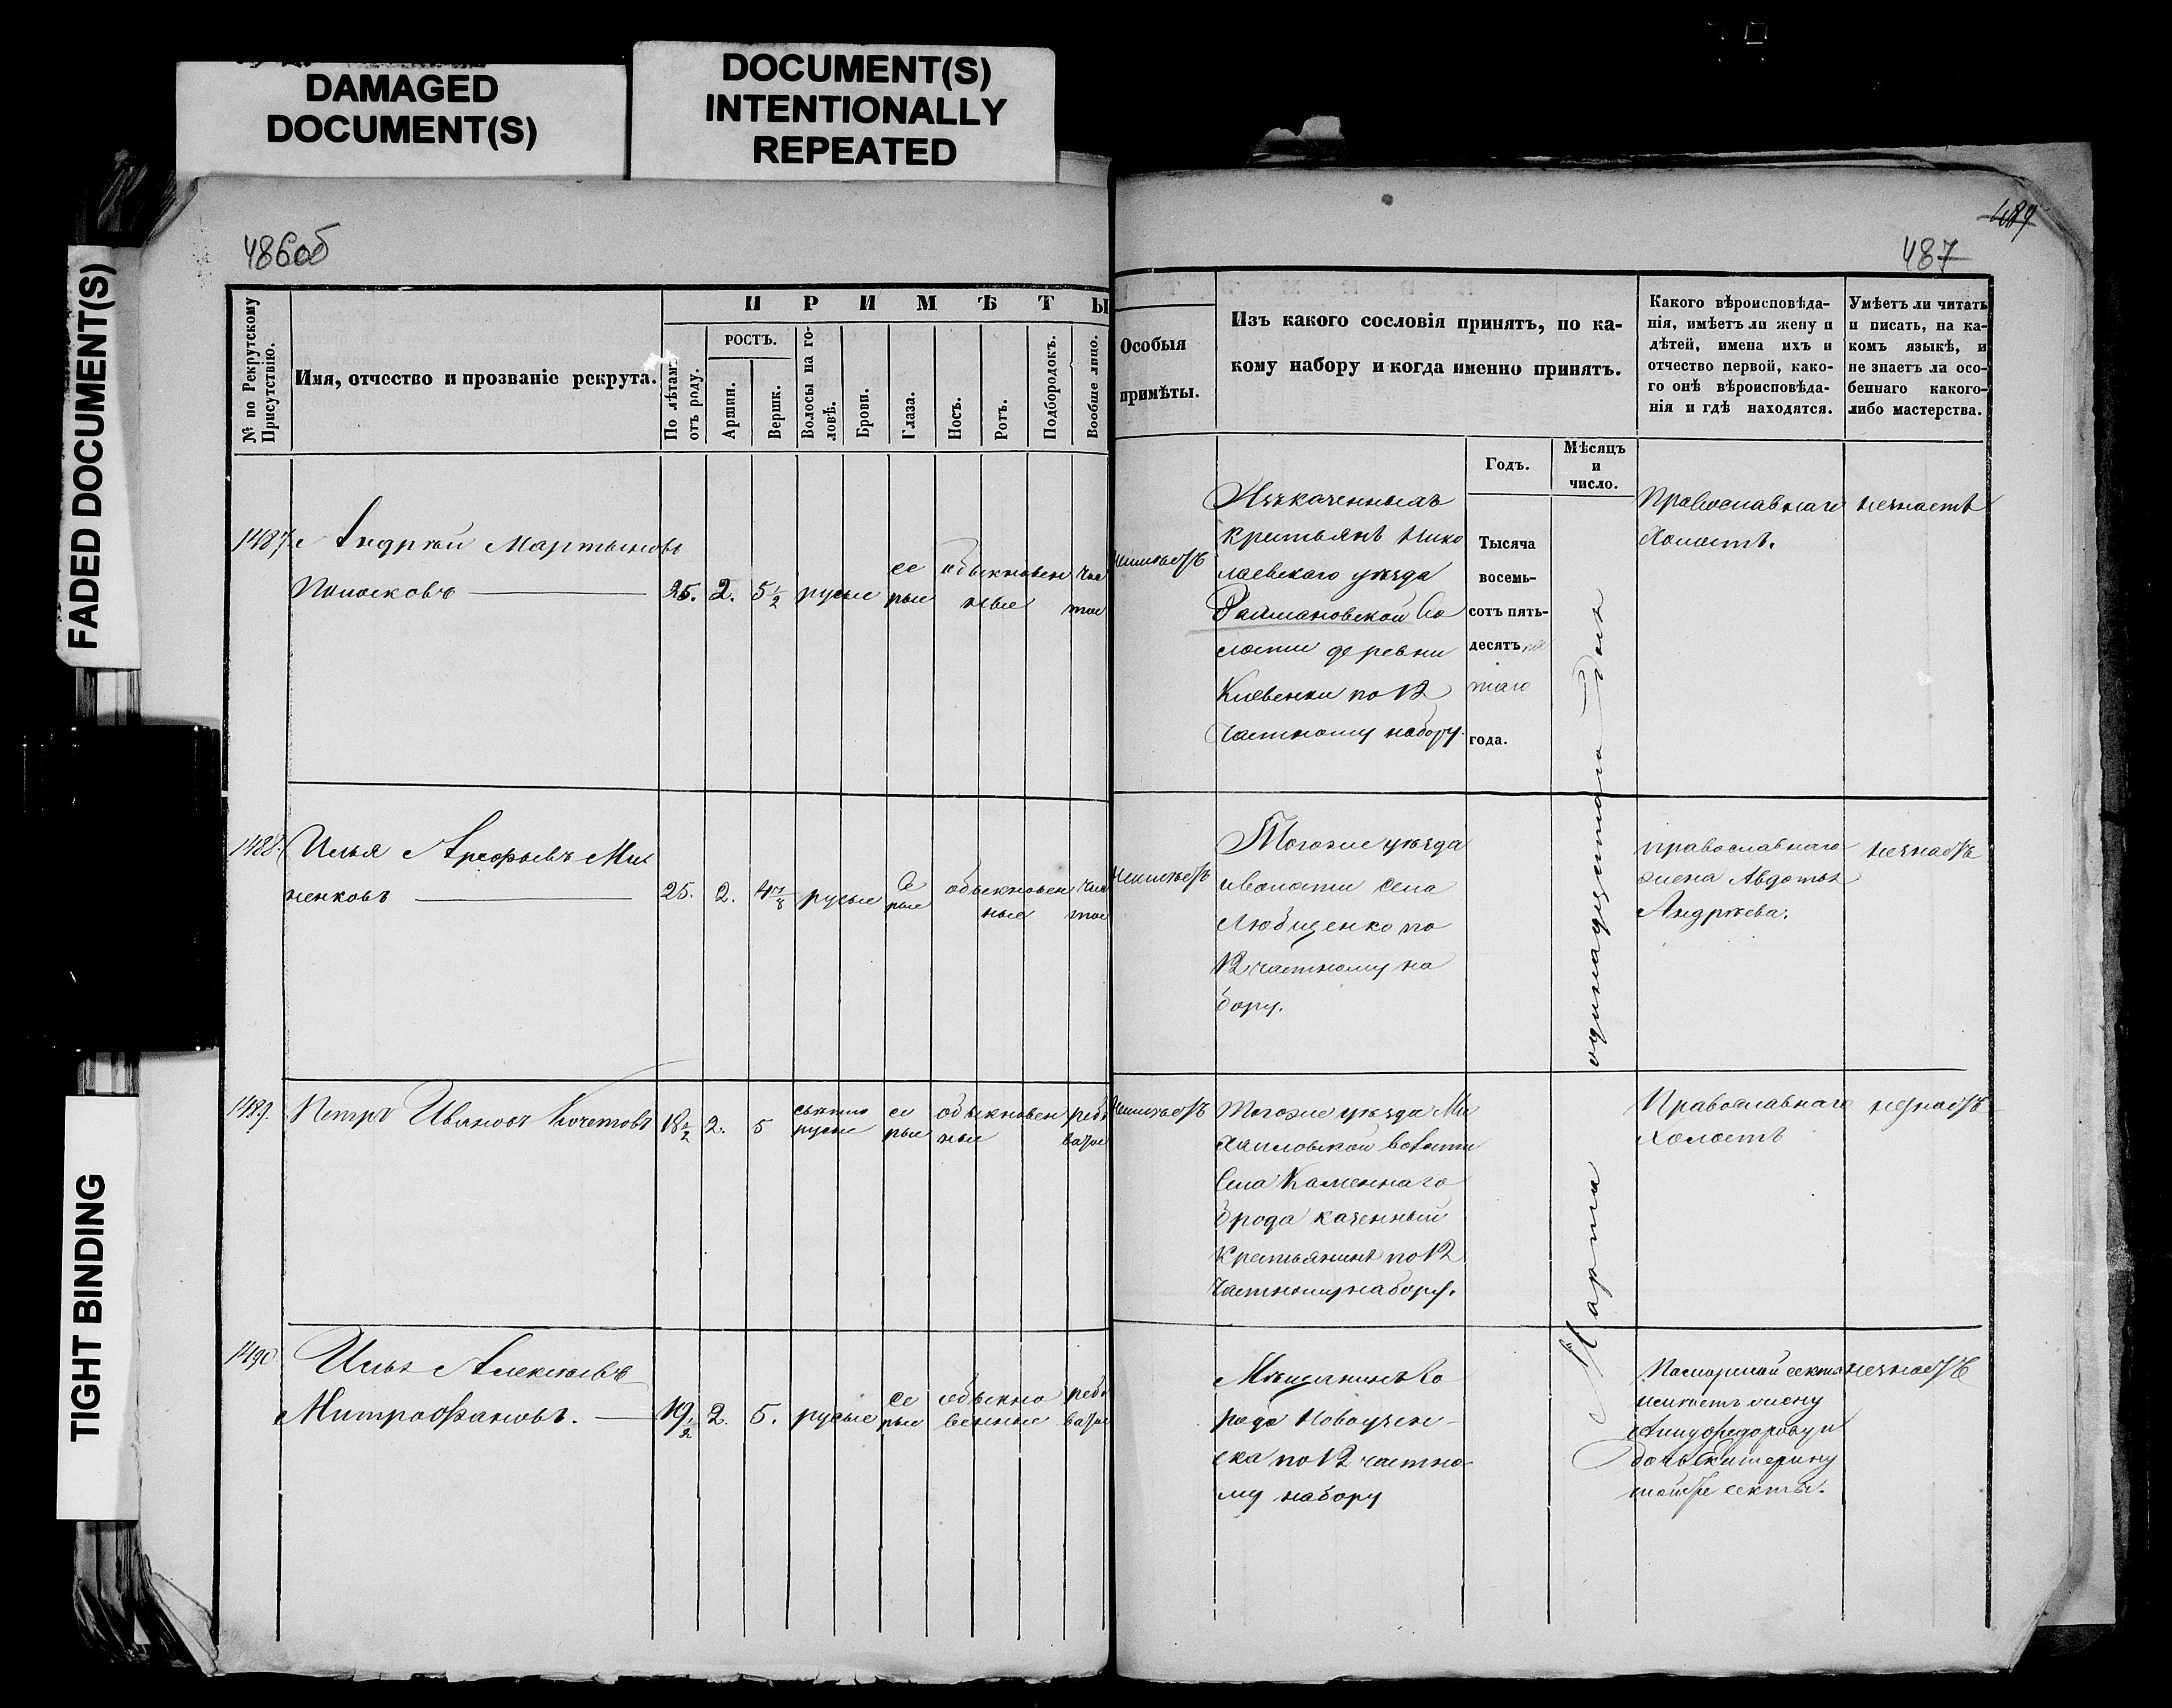 DAMAGED
DOCUMENT(S)
DOCUMENT(S)
INTENTIONALLY
REPEATED
FADED DOCUMENT(S)
TIGHT BINDING
486об
489
487
№ по Рекрутскому
Присутствію.
Имя, отчество и прозваніе рекрута.
ПРИМѢТЫ
По лѣтам
отъ роду.
РОСТЪ.
Аршин.
Вершк.
Волосы на го-
ловѣ.
Брови.
Глаза.
Носъ.
Ротъ.
Подбородокъ.
Вообще лицо.
Особыя
примѣты.
Изъ какого сословія принятъ, по ка-
кому набору и когда именно принятъ.
Какого вѣроисповѣда-
нія, имѣетъ ли жену и
дѣтей, имена ихъ и
отчество первой, како-
го онѣ вѣроисповѣда-
нія и гдѣ находятся.
Умѣетъ ли читать
и писать, на ка-
комъ языкѣ, и
не знаетъ ли осо-
беннаго какого-
либо мастерства.
Годъ.
Мѣсяцъ
и
число.
Тысяча
восемь-
сотъ пять-
десятъ
таго
года.
Марта одинадцатаго дня
1487
Андрей Мартыновъ
25. 2. 5½ русые се
рые обыкновен
ные чис
тое
неимѣетъ
крестьянъ Нико
лаевскаго уѣзда
во
лости деревни
Клевенки по 12
частному набору
Православнаго
Холостъ.
незнаетъ
1488.
Илья Арефьевъ Ми
ненковъ
25. 2. 4⅞ русые се
рые обыкновен
ные чис
тое
неимѣетъ
Тогоже уѣзда
иволости села
Любиценко по
12 частному на
бору.
православнаго
жена Авдотья
Андрѣева.
незнаетъ
1489.
Петръ Ивановъ Кочетовъ
18½ 2. 5 свѣтло
русые се
рые обыкновен
ные рябо
ватое
неимѣетъ
Тогоже уѣзда Ми
хайловской волости
села Каменнаго
брода казенный
крестьянинъ по 12
частному набору.
Православнаго
Холостъ
незнаетъ
1490
Илья Алексѣевъ
Митрофановъ.
19½ 2. 5. русые се
рые обыкно
венные рябо
ватое
Мѣщанинъ го
рода Новоузен-
ска по 12 частно-
му набору
Поморской секты
имѣетъ жену
дочь Екатерину
тойже секты.
незнаетъ